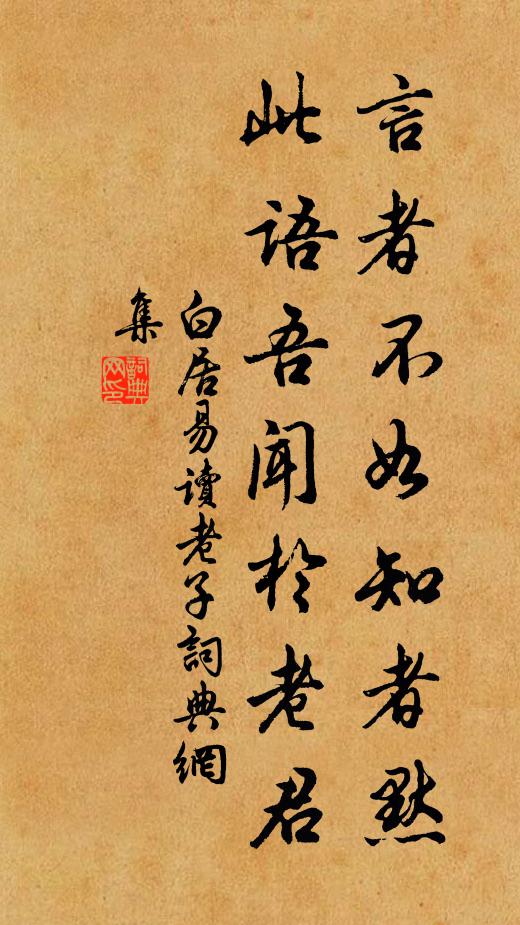 言者不如知者默
此語吾聞於老君
白居易讀老子詞典網
集
詞典
网印